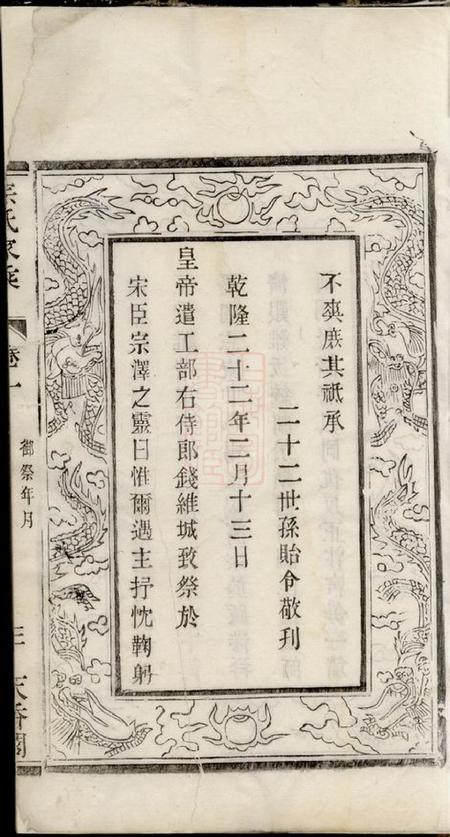 不爽庶其祗承
二十二世孫貽令敬刊
乾隆二十二年二月十三日
皇帝遣工部右侍郎錢維城致祭於
宋臣宗澤之靈曰惟爾遇主抒忱鞠躬
氏家
卷一
御祭年月
天香閣